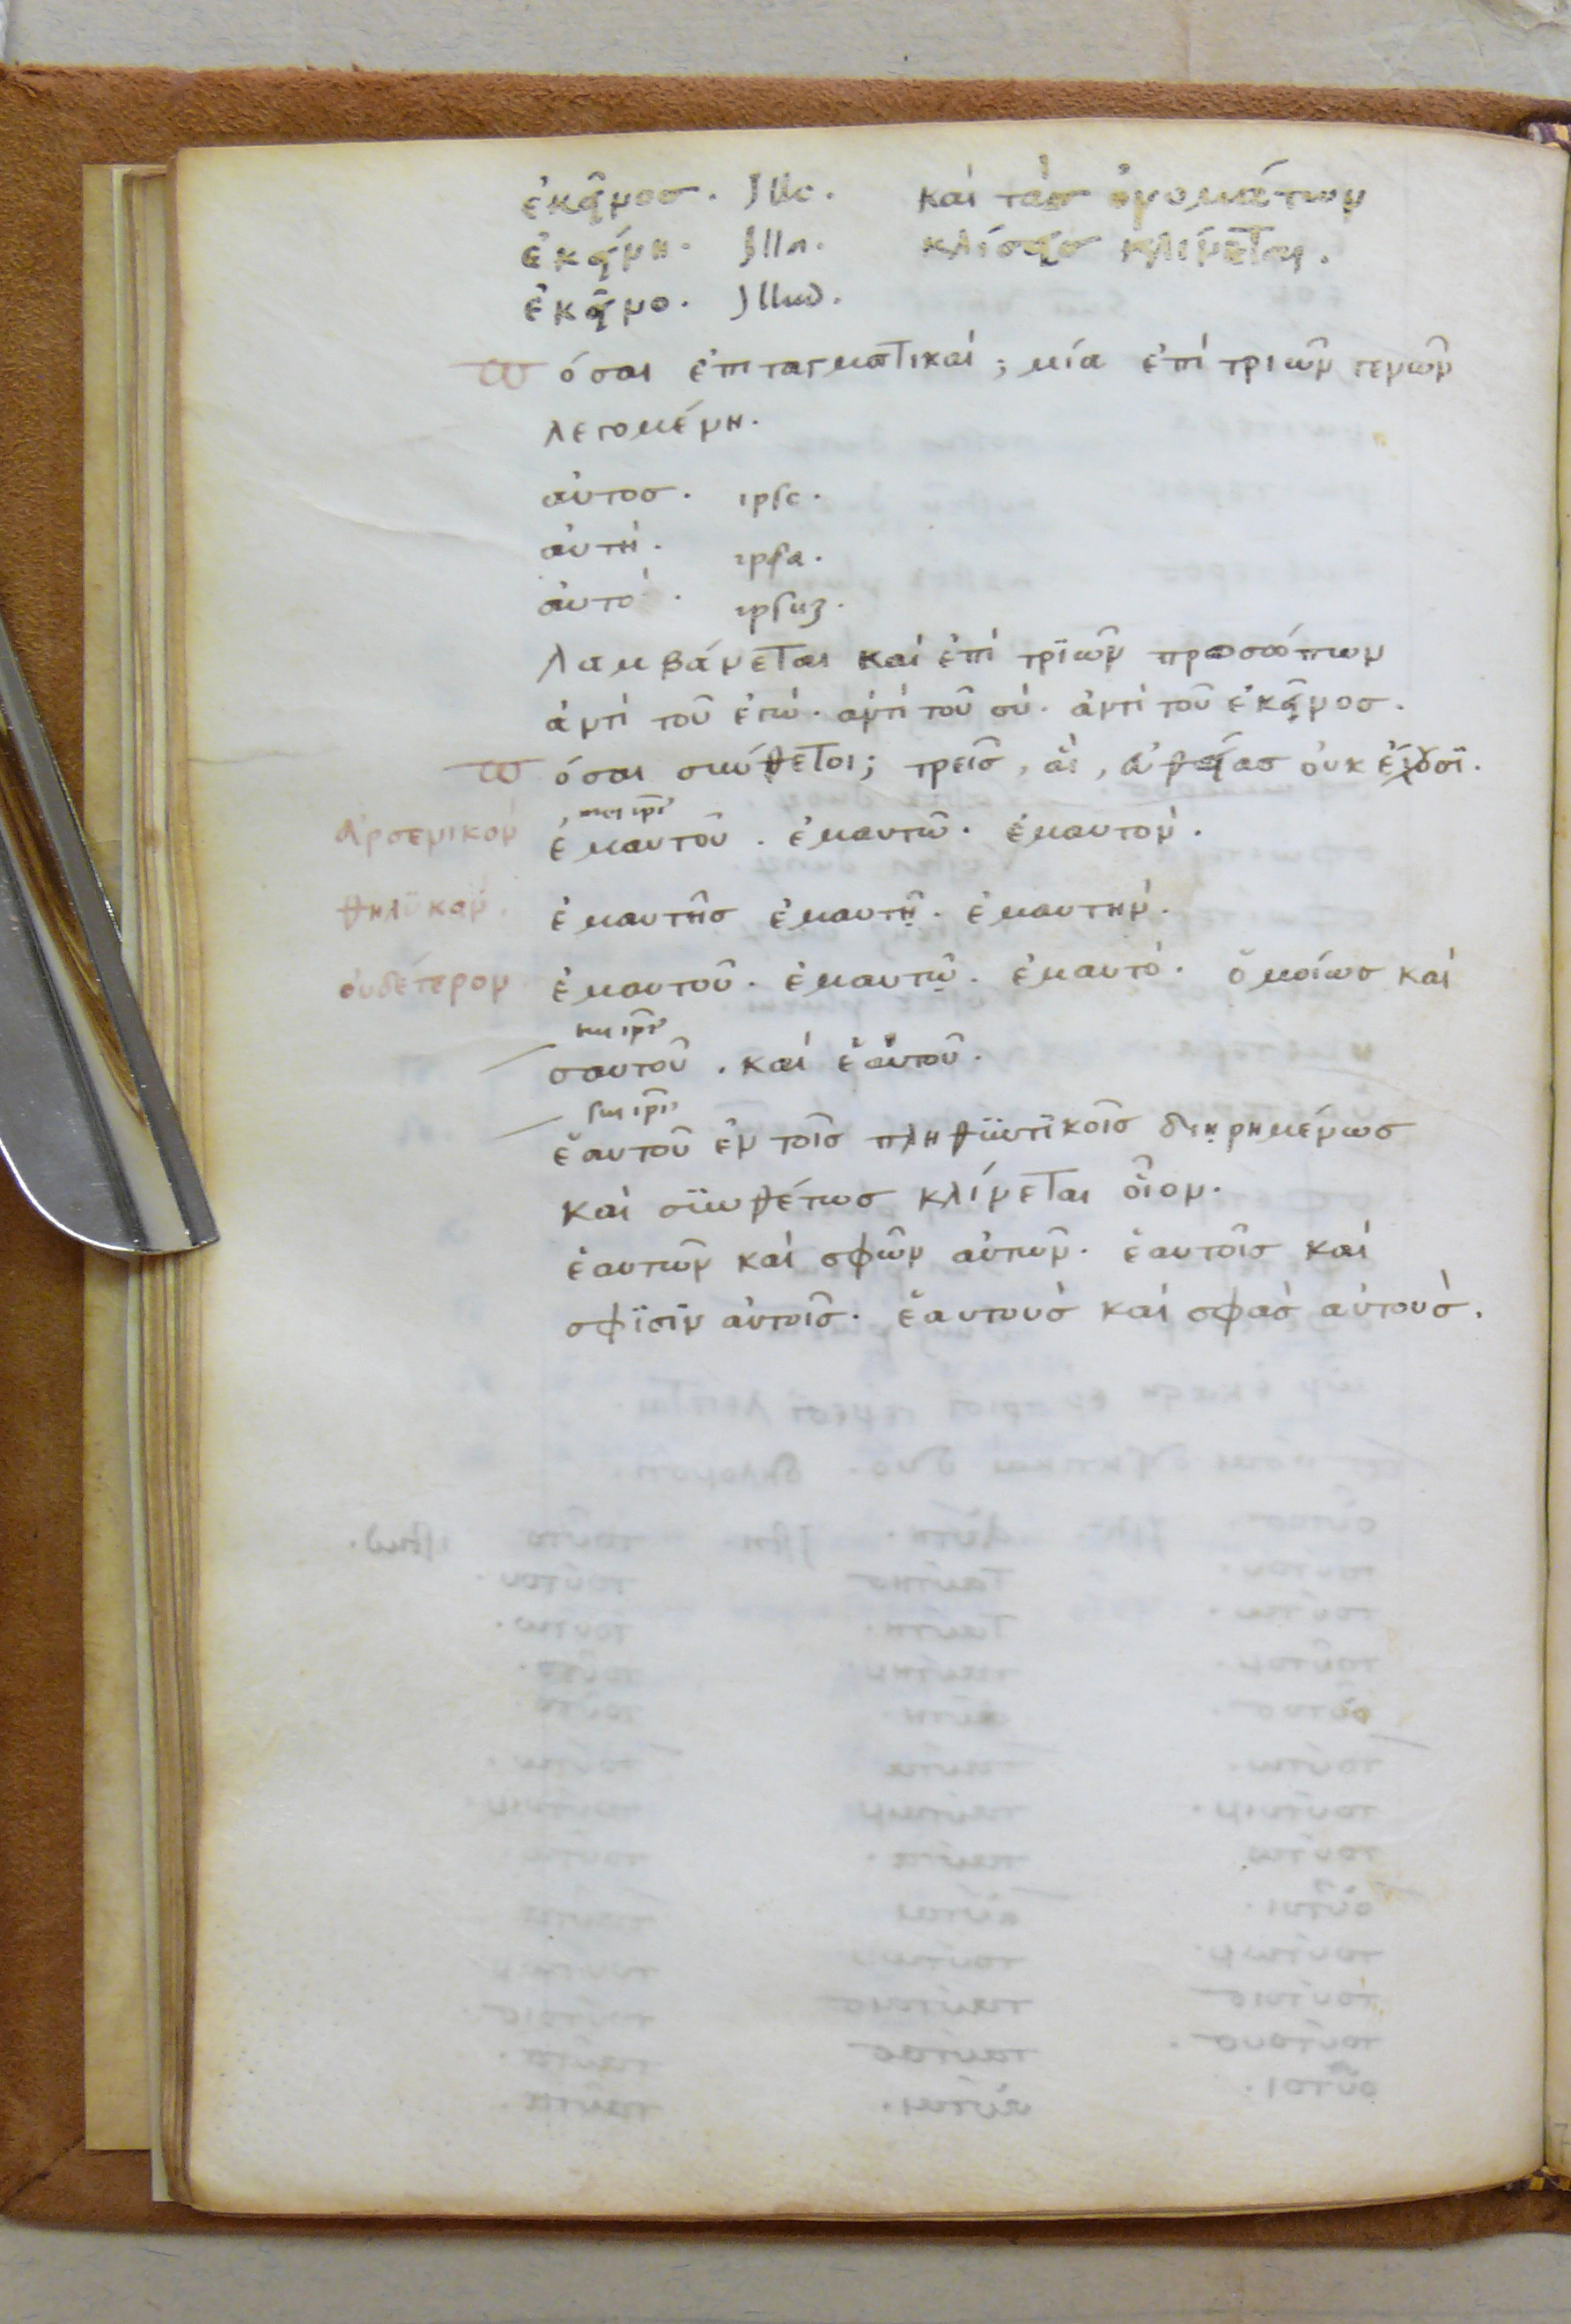 ἐκεῖνος. Ille. καὶ τὰς ὀνομάτων
ἐκείνη. Illa. κλίσεις κλίνεται.
ἐκεῖνο. Illud.
πόσαι ἐπιταγματικαί; μία ἐπὶ τριῶν γενῶν
λεγομένη.
αὐτος. ipse.
αὐτή. ipsa.
αὐτό. ipsuꝫ.
λαμβάνεται καὶ ἐπὶ τρϊῶν προσώπων
ἀντὶ τοῦ ἐγώ. ἀντὶ τοῦ σύ. ἀντὶ τοῦ ἐκεῖνος.
πόσαι σύνθετοι; τρεῖς, αἳ, εὐθείας οὐκ ἔχουσϊ.
mei ipsiꝰ
ἀρσενικὸν ἐμαυτοῦ. ἐμαυτῶ. ἐμαυτον.
θηλϋκὸν. ἐμαυτῆς ἐμαυτῇ. ἐμαυτην.
οὐδέτερον ἐμαυτοῦ. ἐμαυτῷ. ἐμαυτό. ὁμοίως καὶ
tui ipsiꝰ
σαυτοῦ. καὶ ἑαυτοῦ.
sui ipsiꝰ
ἑαυτοῦ ἐν τοῖς πληθϋντϊκοῖς διῃρημένως
καὶ σϋνθέτως κλίνεται οἷον.
ἑαυτῶν καὶ σφῶν αὐτῶν. ἑαυτοῖς καὶ
σφϊσϊν αὐτοῖς. ἑαυτοὺς καὶ σφὰς αὐτοὺς.